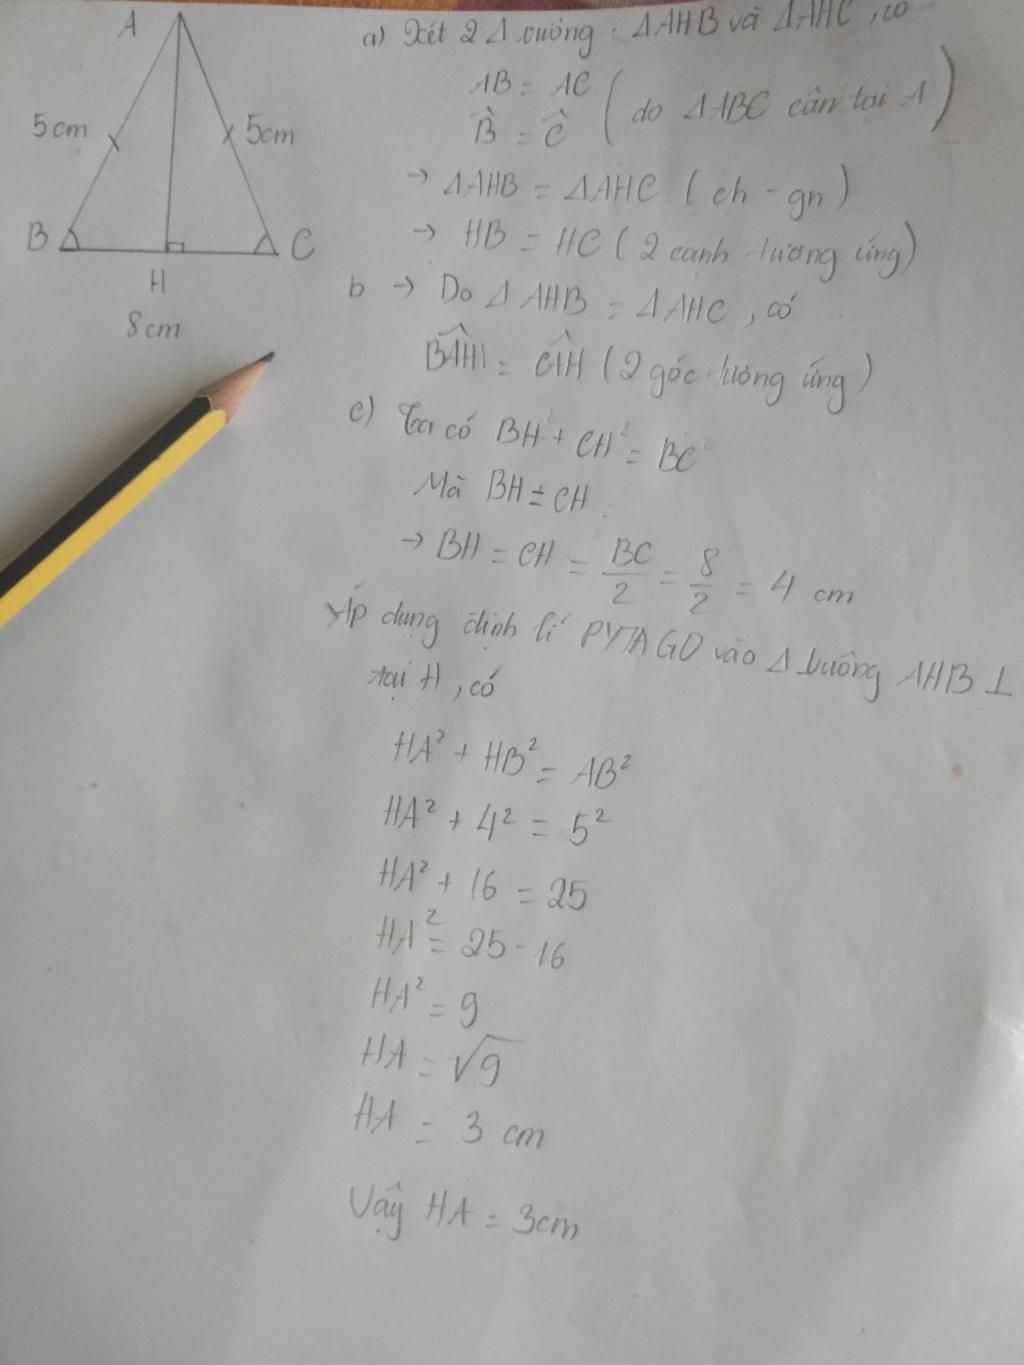 A
5cm
5cm
B
C
H
8cm
a) Xét 2 Δ vuông : ΔAHB và ΔAHC, có
AB = AC
B̂ = Ĉ ( do ΔABC cân tại A )
→ ΔAHB = ΔAHC ( ch - gn )
→ HB = HC ( 2 cạnh tương ứng )
b → Do Δ AHB = Δ AHC , có
BÂH = CÂH ( 2 góc tương ứng )
c) Ta có BH² + CH² = BC²
Mà BH = CH
→ BH = CH = BC/2 = 8/2 = 4 cm
Áp dụng định lí PYTAGO vào Δ vuông AHB ⊥
tại H , có
HA² + HB² = AB²
HA² + 4² = 5²
HA² + 16 = 25
HA² = 25 - 16
HA² = 9
HA = √9
HA = 3 cm
Vậy HA = 3cm